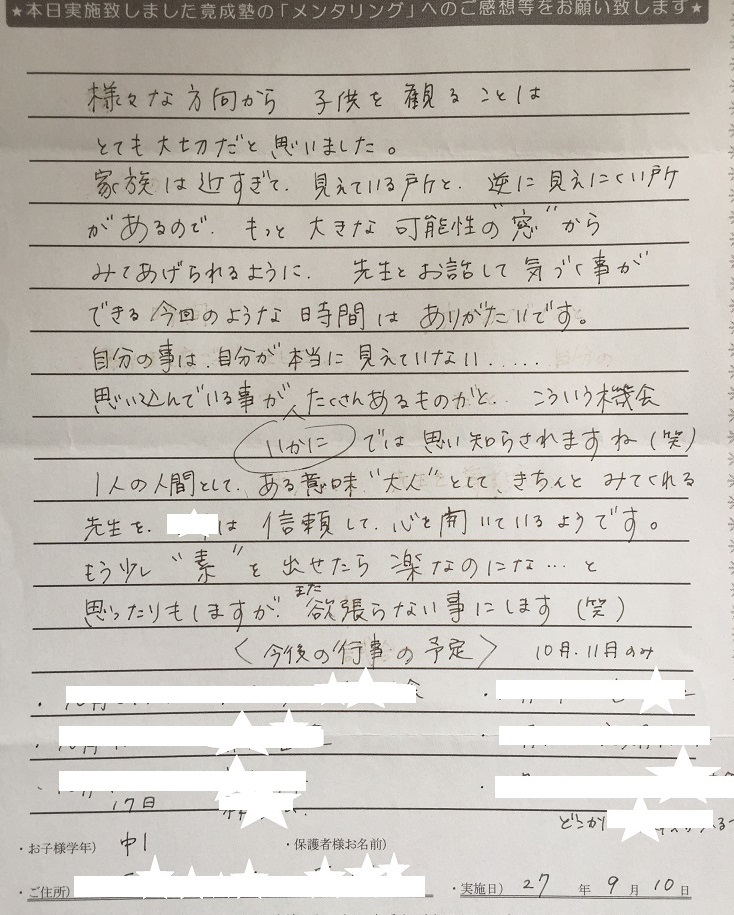 ★本日実施致しました竟成塾の「メンタリング」へのご感想等をお願い致します★
様々な方向から 子供を観ることは
とても大切だと思いました。
家族は近すぎて、見えている所と、逆に見えにくい所
があるので、もっと大きな可能性の"窓"から
みてあげられるように、先生とお話して気づく事が
できる今回のような時間はありがたいです。
自分の事は、自分が本当に見えていない……
思い込んでいる事がいかにたくさんあるものかと、こういう機会
では思い知らされますね(笑)
1人の人間として、ある意味"大人"として、きちんとみてくれる
先生を、は信頼して、心を開いているようです。
もう少し"素"を出せたら楽なのにな…と
思ったりもしますが、まだ欲張らない事にします(笑)
〈今後の行事の予定〉 10月、11月のみ
17日
どこか
・お子様学年) 中1 ・保護者様お名前)
・ご住所) ・実施日) 27年 9月 10日